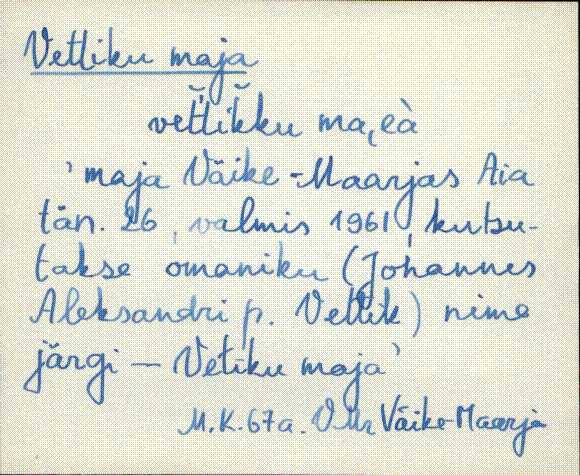 Vettiku maja
vet̆tik̆ku ma,eà
'maja Väike-Maarjas Aia
tän. 26, valmis 1961, kutsu-
takse omaniku (Johannes
Aleksandri p. Vettik) nime
järgi — Vetiku maja'
M.K. 67a. VMr Väike-Maarja